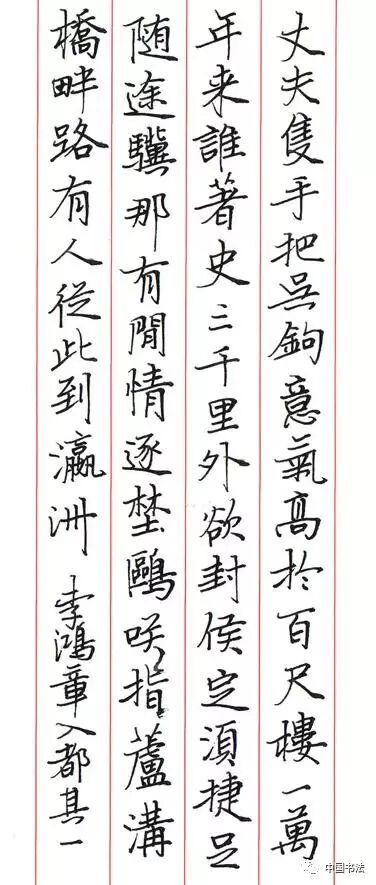 丈夫隻手把吳鉤意氣高於百尺樓一萬
年来誰著史三千里外欲封侯定須捷足
随途驥那有閒情逐埜鷗咲指蘆溝
橋畔路有人從此到瀛洲 李鴻章入都其一
中国书法